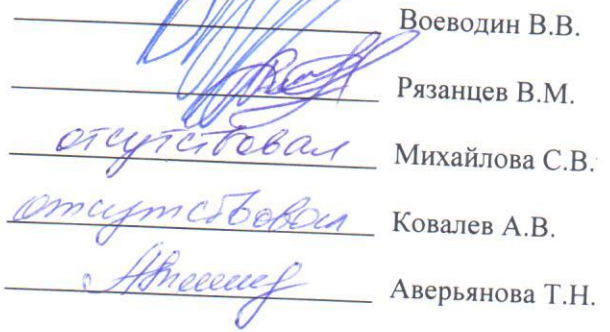 Воеводин В.В.
Рязанцев В.М.
отсутствовал Михайлова С.В.
отсутствовал Ковалев А.В.
Аверьянова Т.Н.